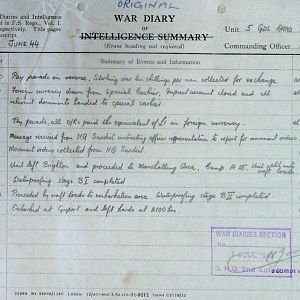 ORIGINAL
Diaries and Intelligence
d in F.S. Regs., Vol. I
pectively. Title pages
nuscript.
WAR DIARY
or
INTELLIGENCE SUMMARY
(Erase heading not required)
Unit 5 GDS ARMD
Commanding Officer
JUNE 44
Summary of Events and Information
Pay parade in reverse, Sterling over ten shillings per man collected for exchange
Foreign currency drawn from Special Cashier. Imprest account closed and all
relevant documents handed to special cashier
Pay parade, all O/Rs paid the equivalent of £1 in foreign currency.
Message received from HQ conducting officer representative to report for movement orders
Movement orders collected from HQ
Unit left Brighton and proceeded to Marshalling Area, Camp A 25. Unit split into
Waterproofing stage B I completed
Proceeded by craft loads to embarkation area. Waterproofing stage B II completed.
Embarked at Gosport and left hards at 2100 hrs
WAR DIARIES SECTION
JUL
G.H.Q. 2nd